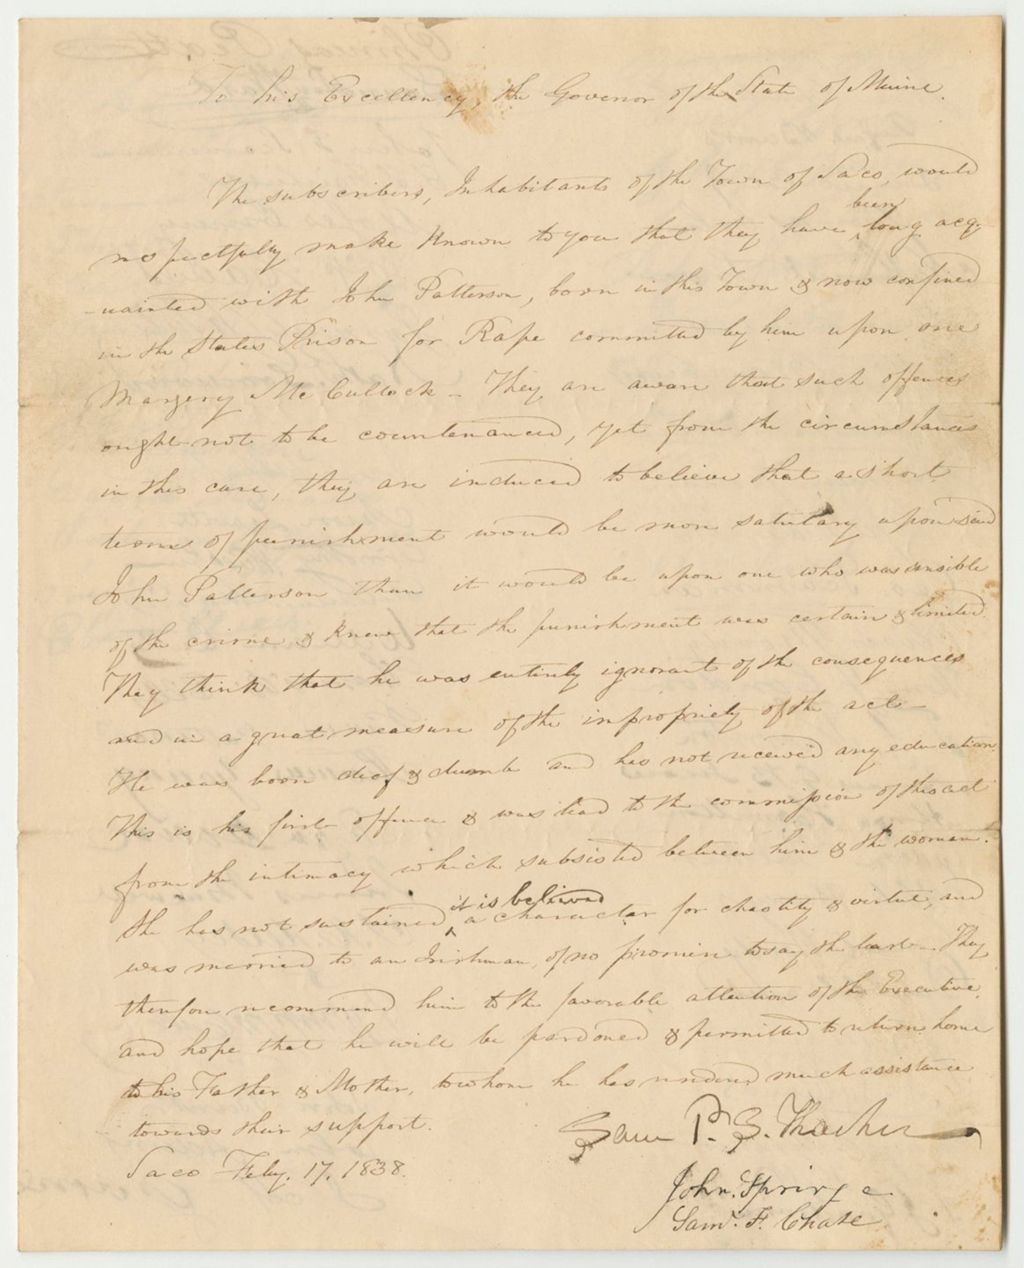 To his Excellency, the Govenor of the State of Maine.
The subscribers, Inhabitants of the Town of Saco, would
respectfully make known to you that they have been long acq-
-uainted with John Patterson, born in this Town & now confined
in the States Prison for Rape committed by him upon one
Margery McCullock - They are aware that such offences
ought not to be countenanced, yet from the circumstances
in this case, they are induced to believe that a short
term of punishment would be more salutary upon said
John Patterson than it would be upon one who was sensible
of the crime & knew that the punishment was certain & limited.
They think that he was entirely ignorant of the consequences
and in a great measure of the impropriety of the act -
He was born deef & dumb and has not received any education
This is his first offence & was lead to the commission of this act
from the intimacy which subsisted between him & the woman.
She has not sustained it is believed a character for chastity & virtue, and
was married to an Irishman, of no promise to say the least. They
therefore recommend him to the favorable attention of the Executive,
and hope that he will be pardoned & permitted to return home
to his Father & Mother, to whom he has rendered much assistance
towards their support.
Saco Feby. 17. 1838.
Sam P. S. Thacher
John Spring
Saml. F. Chase